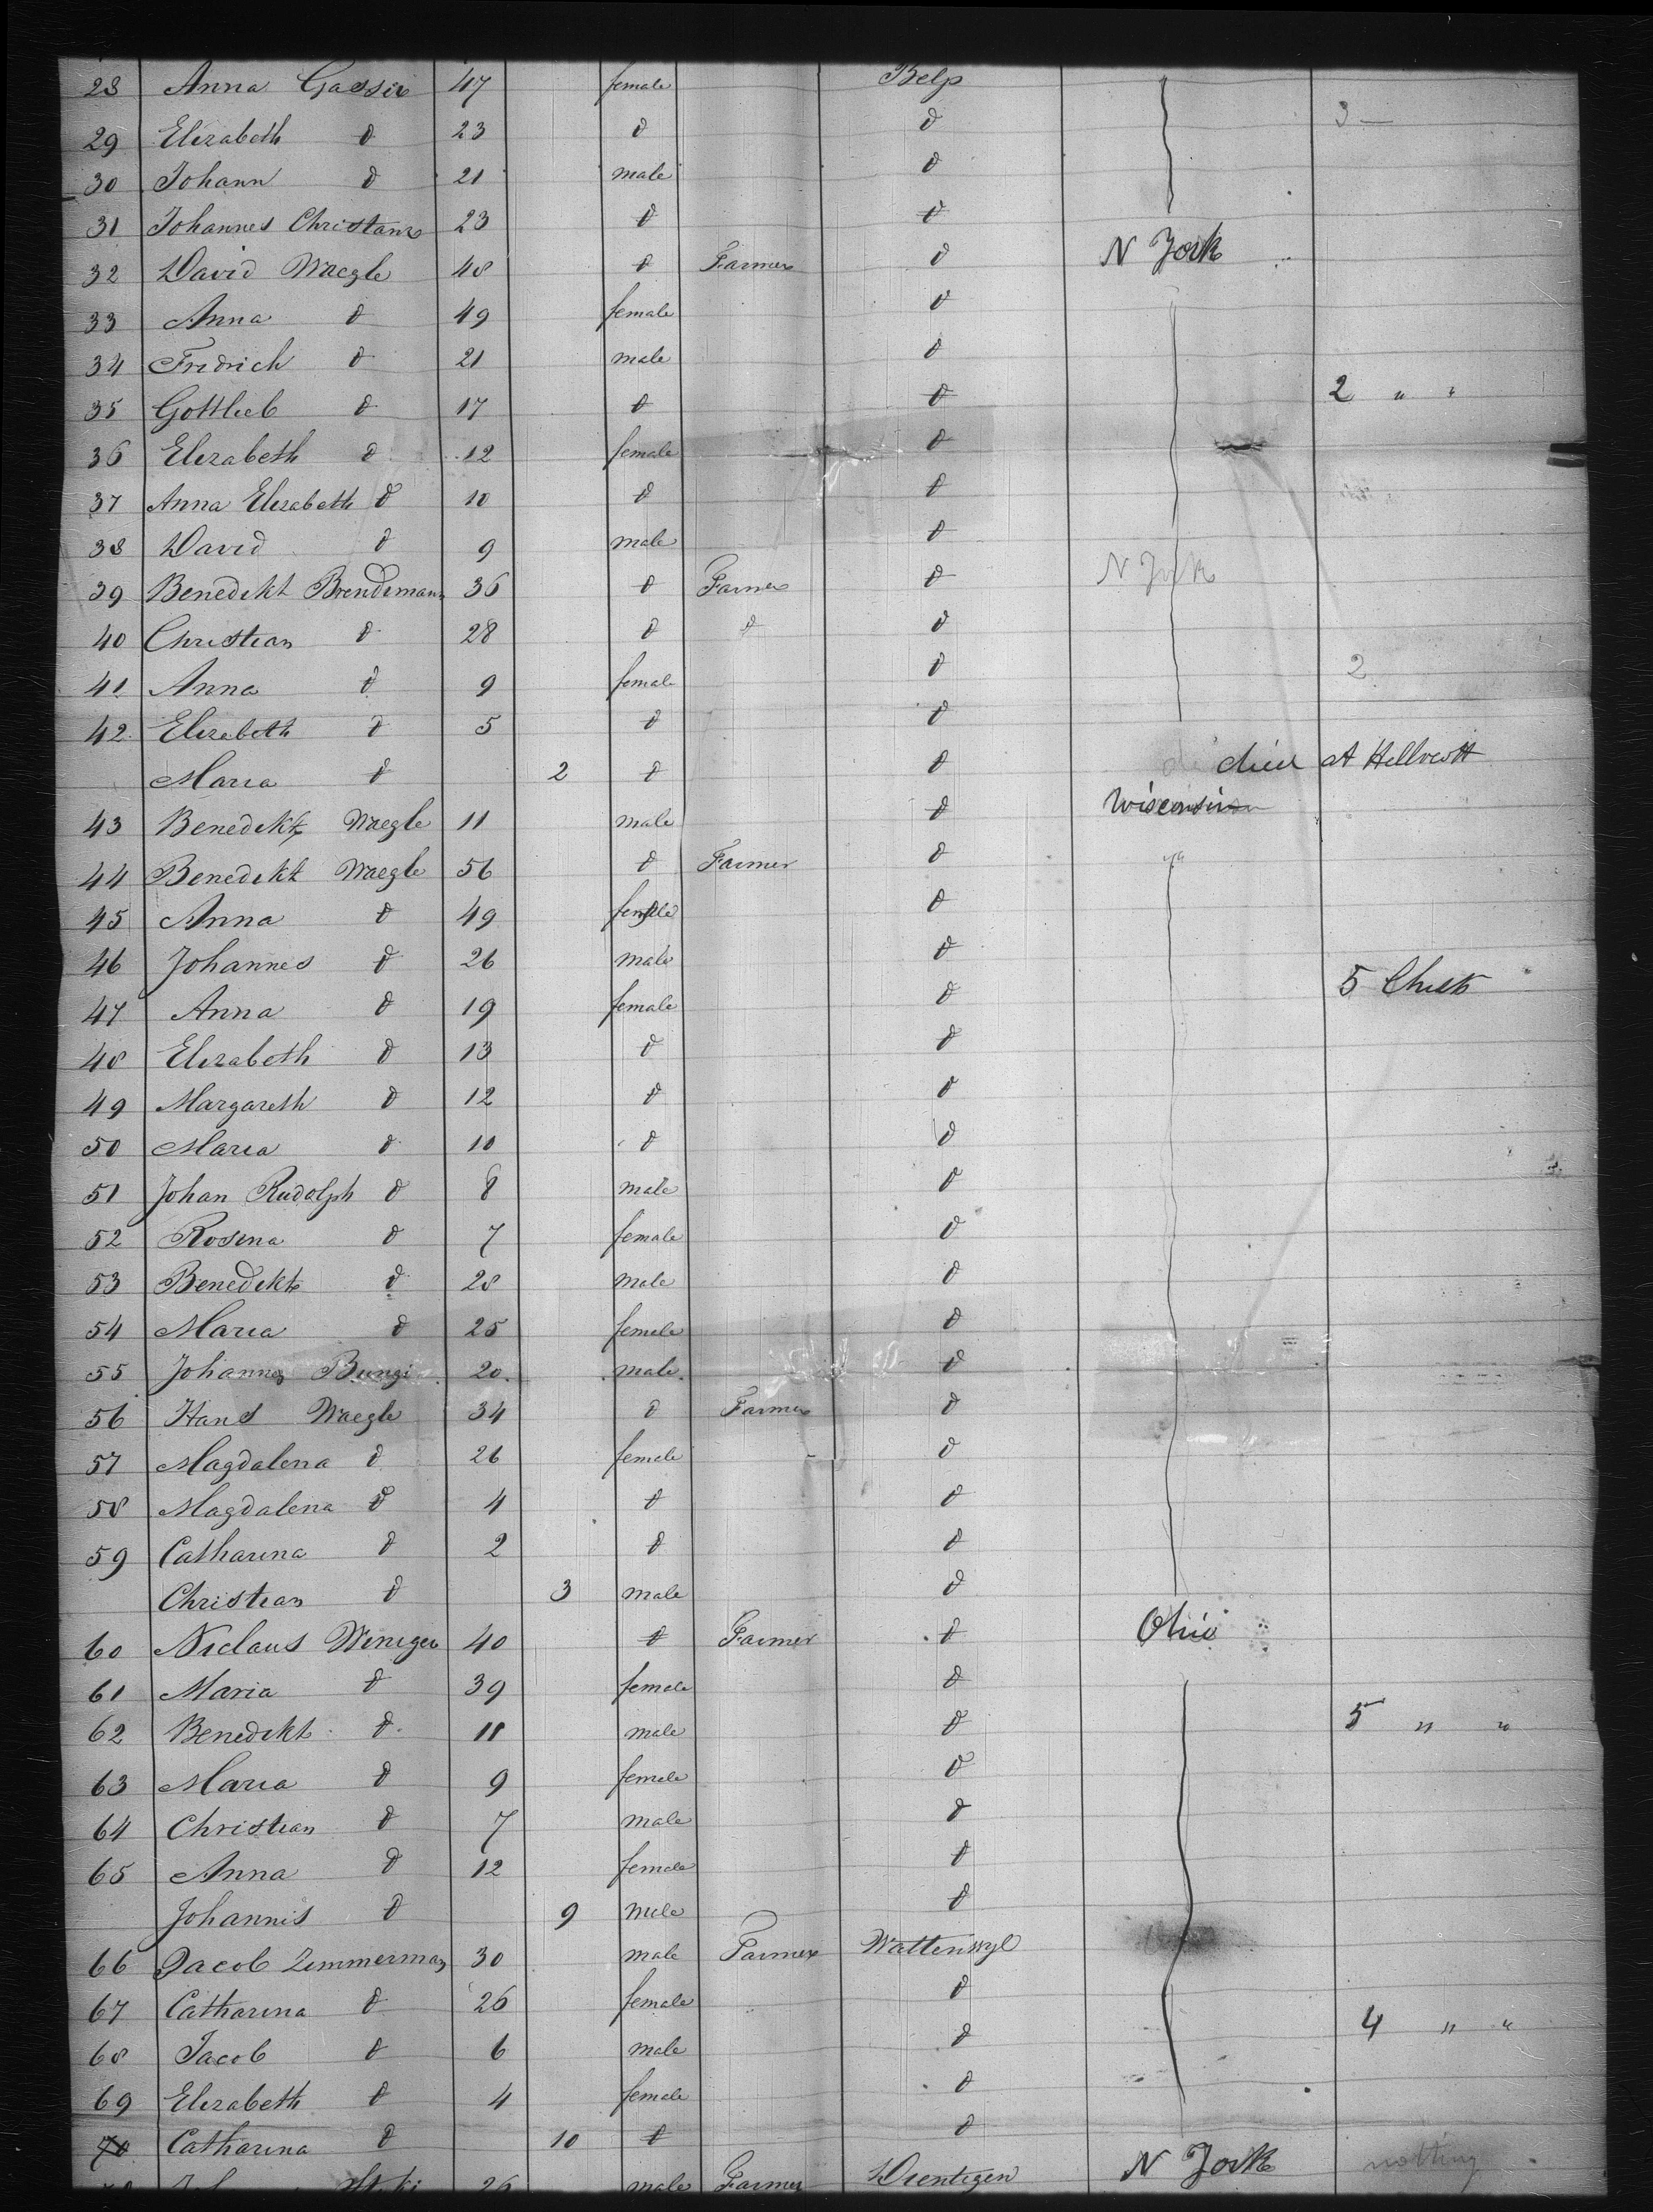 28 Anna Gasser 47 female Belp
29 Elizabeth d 23 d d 3 —
30 Johann d 21 male d
31 Johannes Christanz 23 d d
32 David Waegle 48 d Farmer d N York
33 Anna d 49 female d
34 Fridrich d 21 male d
35 Gottlieb d 17 d d 2 " "
36 Elizabeth d 12 female d
37 Anna Elizabeth d 10 d d
38 David d 9 male d
39 Benedikt Brendimann 36 d Farmer d N York
40 Christian d 28 d d d
41 Anna d 9 female d 2
42 Elizabeth d 5 d d
Maria d 2 d d died at Hellvoett
43 Benedikt Waegle 11 male d Wisconsin
44 Benedikt Waegle 56 d Farmer d
45 Anna d 49 female d
46 Johannes d 26 male d
47 Anna d 19 female d 5 Chests
48 Elizabeth d 13 d d
49 Margareth d 12 d d
50 Maria d 10 d d
51 Johan Rudolph d 8 male d
52 Rosina d 7 female d
53 Benedikt d 28 male d
54 Maria d 25 female d
55 Johannes Bungi 20 male d
56 Hans Waegle 34 d Farmer d
57 Magdalena d 26 female d
58 Magdalena d 4 d d
59 Catharina d 2 d d
Christian d 3 male d
60 Niclaus Weniger 40 d Farmer d Ohio
61 Maria d 39 female d
62 Benedikt d 11 male d 5 " "
63 Maria d 9 female d
64 Christian d 7 male d
65 Anna d 12 female d
Johannis d 9 male d
66 Jacob Zimmerman 30 male Farmer Wattenwyl
67 Catharina d 26 female d
68 Jacob d 6 male d 4 " "
69 Elizabeth d 4 female d
70 Catharina d 10 d d
26 male Farmer N York nothing